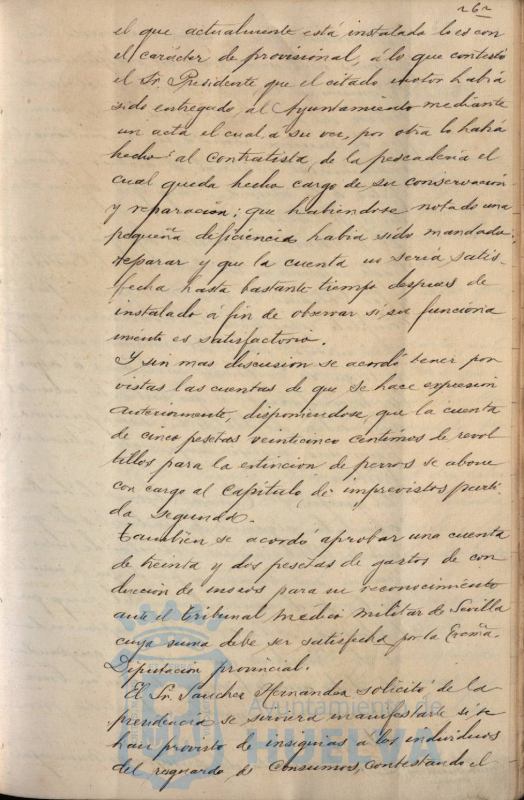 262
el que actualmente está instalado lo es con
el carácter de provisional, á lo que contestó
el Sr. Presidente que el citado motor habia
sido entregado al Ayuntamiento mediante
un acta el cual a su vez, por otra lo había
hecho al contratista de la pescadería el
cual queda hecho cargo de su conservación
y reparación; que habiendose notado una
pequeña deficiencia habia sido mandado
reparar y que la cuenta no seria satis-
fecha hasta bastante tiempo despues de
instalado a fin de observar si su funciona
miento es satisfactorio.
Y sin mas discusion se acordó tener por
vistas las cuentas de que se hace expresion
anteriormente, disponiendose, que la cuenta
de cinco pesetas veinticinco centimos de revol
tillos para la estincion de perros se abone
con cargo al Capitulo de imprevistos parti-
da segunda.
Tambien se acordó aprobar una cuenta
de treinta y dos pesetas de gastos de con
duccion de mozos para su reconocimiento
ante el tribunal medico militar de Sevilla
cuya suma debe ser satisfecha por la Excma.
Diputacion provincial.
El Sr. Sanchez Hernandez solicitó de la
presidencia se sirviera manifestarle si se
han provisto de insignias a los individuos
del resguardo de Consumos, contestando el
Ayuntamiento de
HUELVA